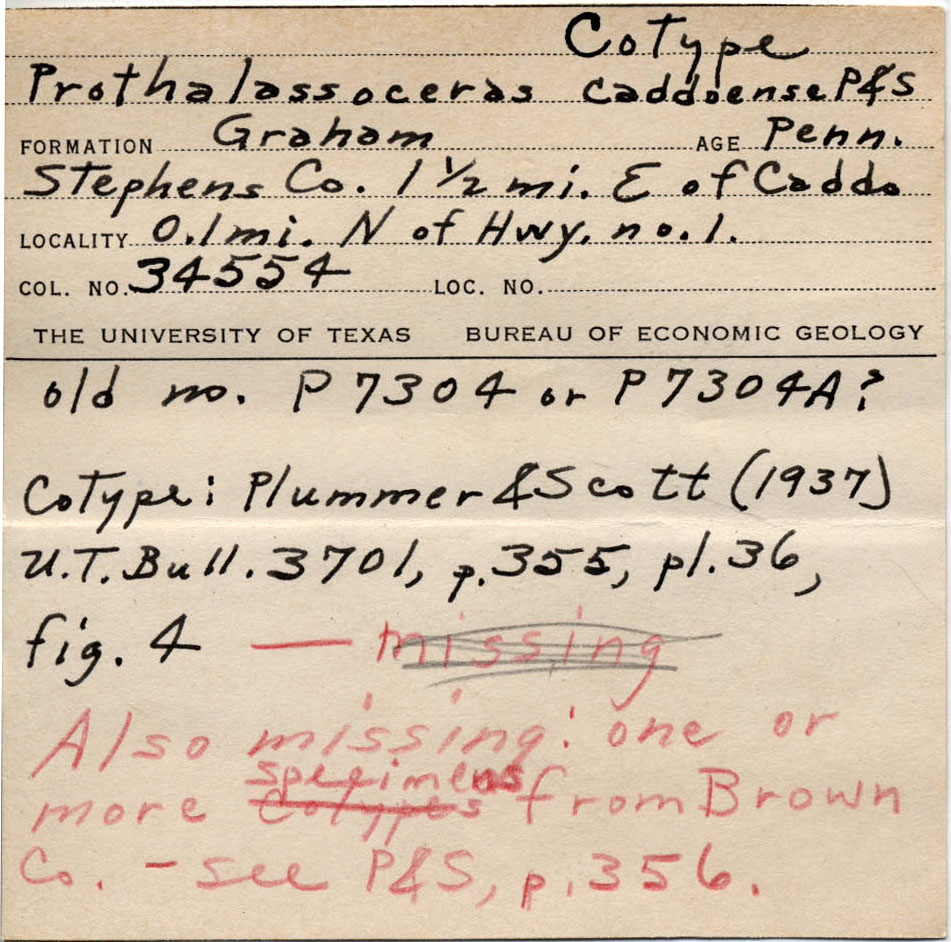 Cotype
Prothalassoceras caddoense P&S
FORMATION Graham AGE Penn.
Stephens Co. 1 1/2 mi. E of Caddo
LOCALITY 0.1 mi. N of Hwy. no. 1.
COL. NO. 34554 LOC. NO.
THE UNIVERSITY OF TEXAS BUREAU OF ECONOMIC GEOLOGY
old no. P 7304 or P 7304A?
Cotype: Plummer & Scott (1937)
U.T. Bull. 3701, p. 355, pl. 36,
fig. 4 — missing
Also missing: one or
specimens
more cotypes from Brown
Co. - see P&S, p. 356.